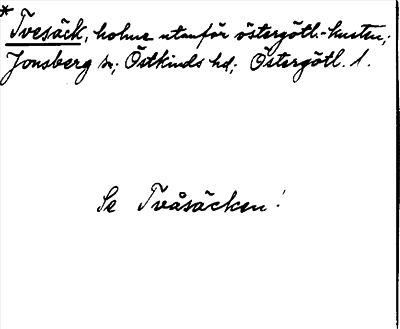 * Tvesäck, holme utanför östergötl.-kusten;
Jonsberg sn; Östkinds hd; Östergötl. l.
Se Tvåsäcken!